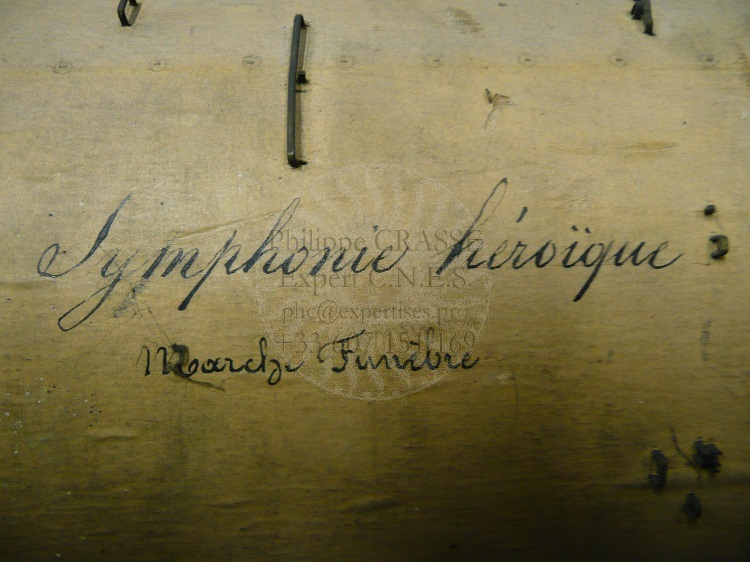 Symphonie héroïque
Marche Funèbre
Philippe CRASSE
Expert C.N.E.S.
phc@expertises.pro